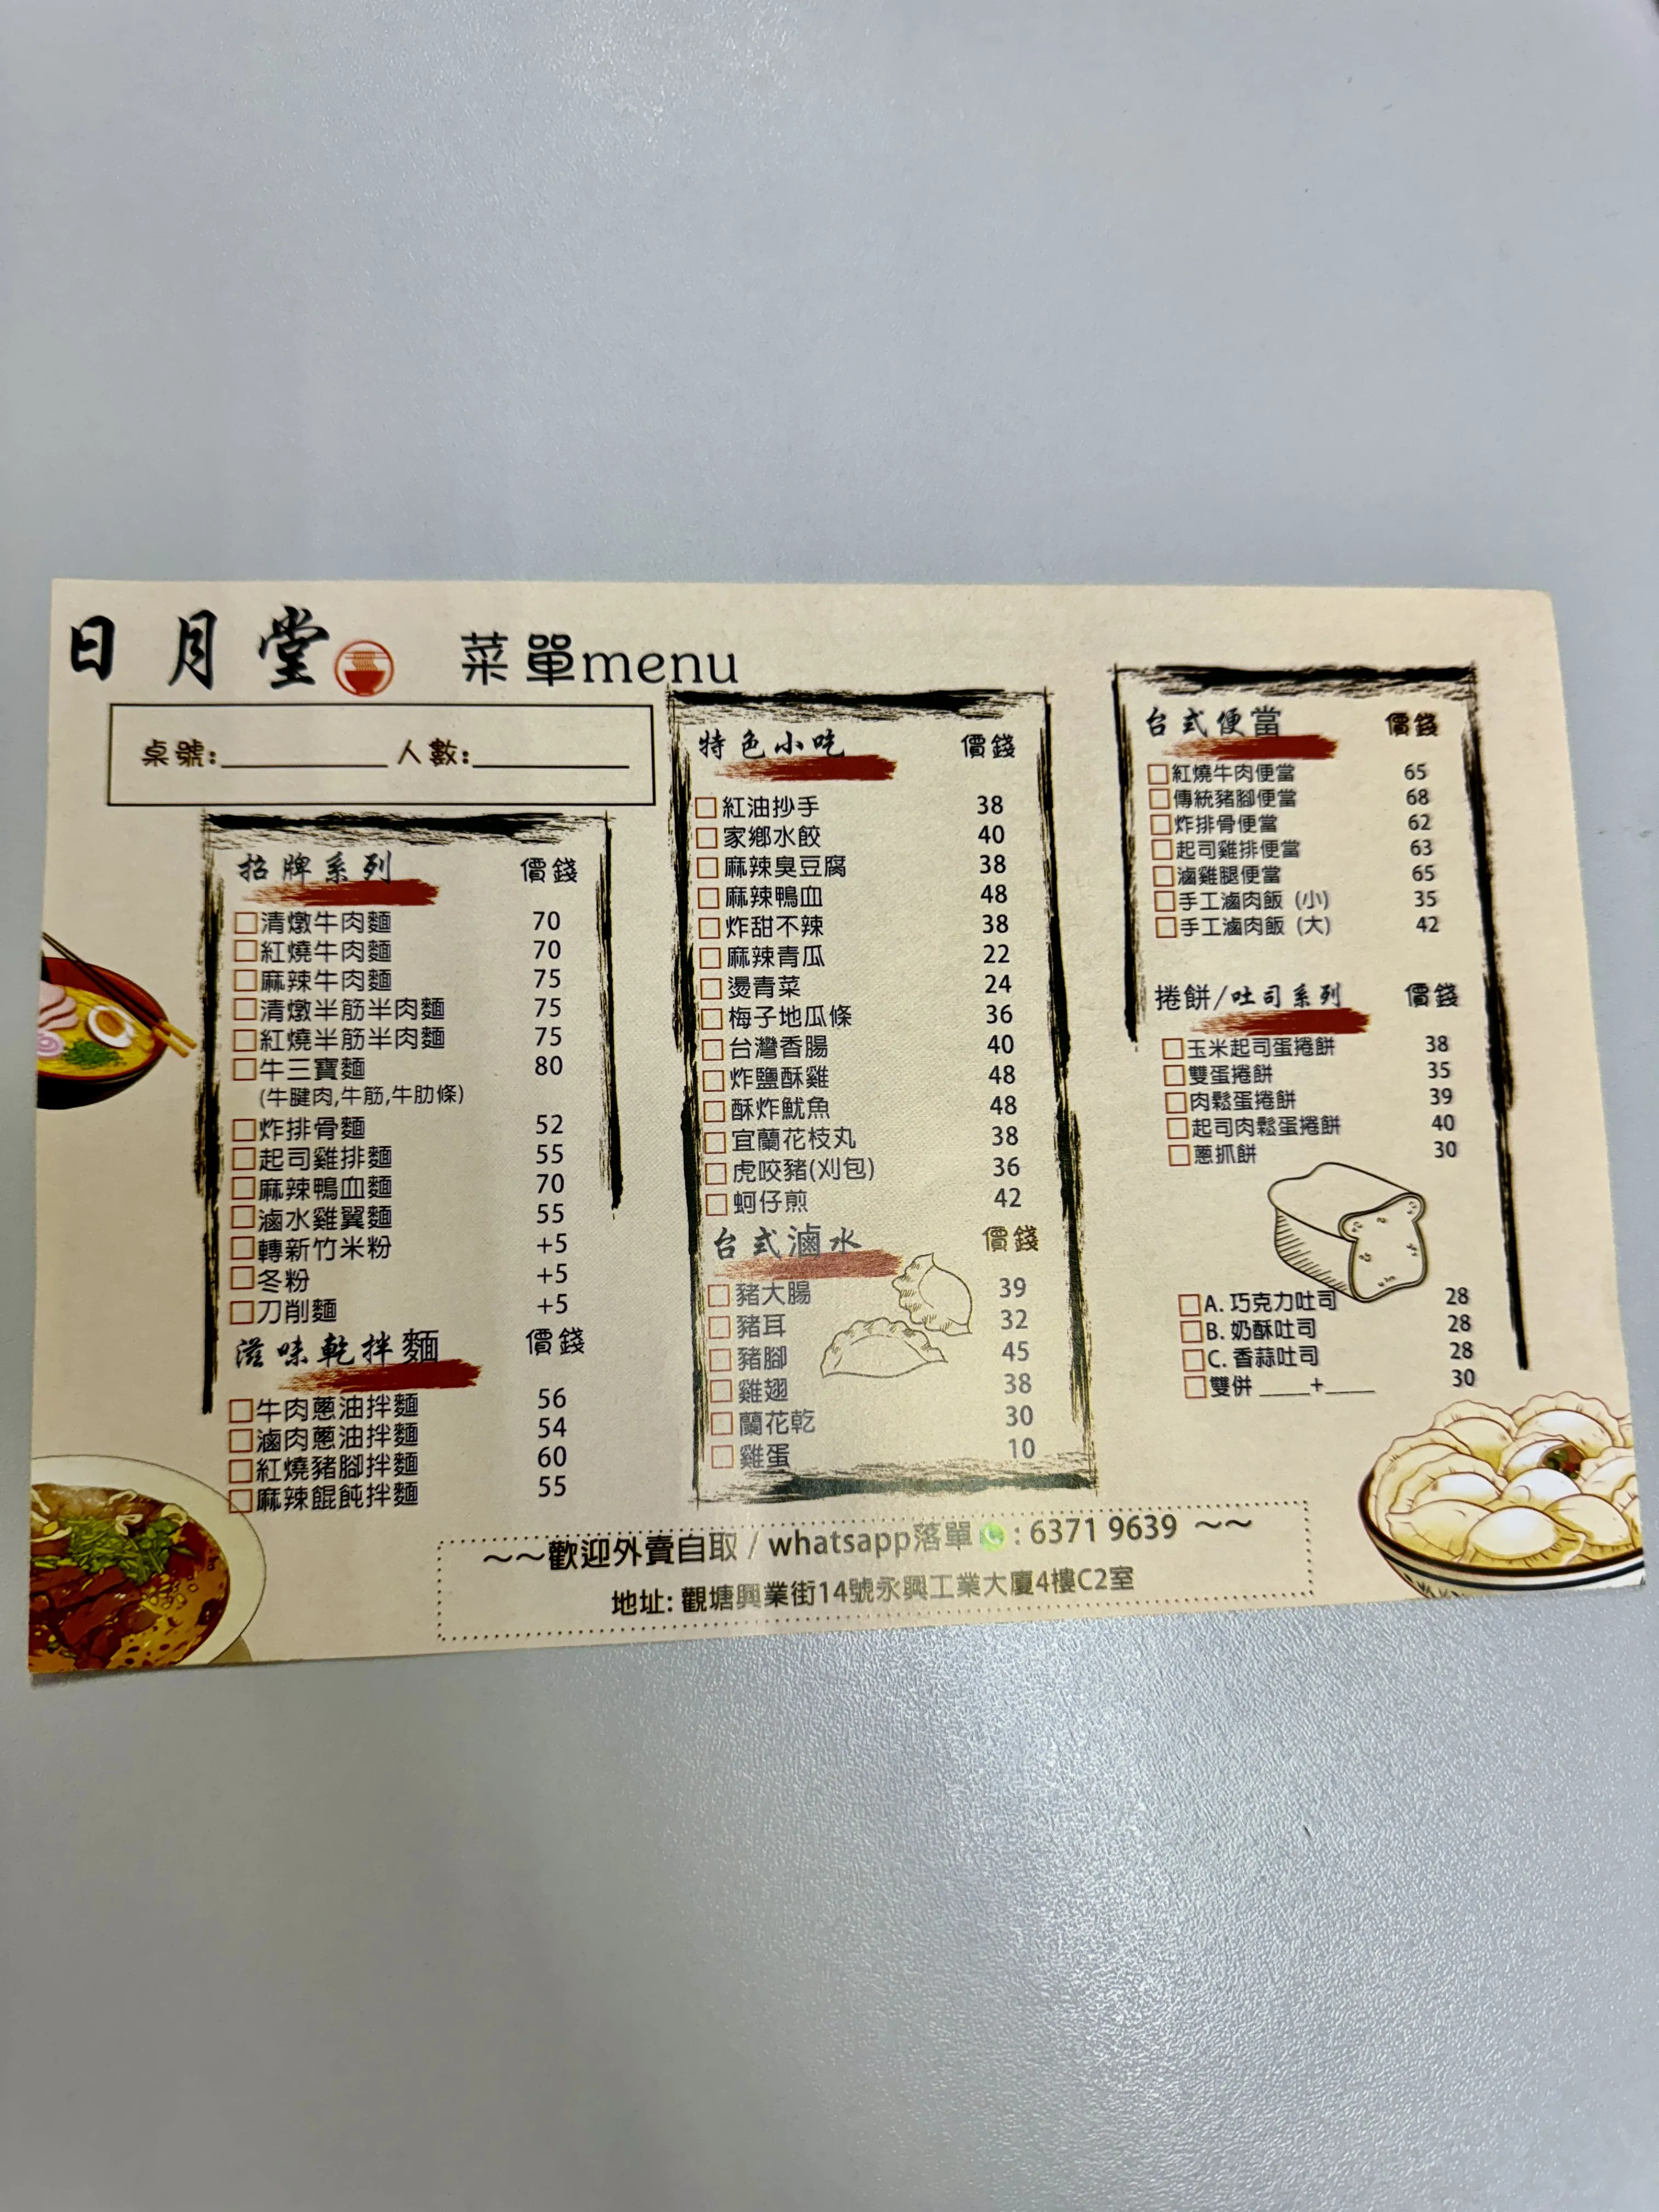 日月堂 菜單menu
桌號:__________ 人數:__________
招牌系列 價錢
清燉牛肉麵 70
紅燒牛肉麵 70
麻辣牛肉麵 75
清燉半筋半肉麵 75
紅燒半筋半肉麵 75
牛三寶麵 80
(牛腱肉,牛筋,牛肋條)
炸排骨麵 52
起司雞排麵 55
麻辣鴨血麵 70
滷水雞翼麵 55
轉新竹米粉 +5
冬粉 +5
刀削麵 +5
滋味乾拌麵 價錢
牛肉蔥油拌麵 56
滷肉蔥油拌麵 54
紅燒豬腳拌麵 60
麻辣餛飩拌麵 55
特色小吃 價錢
紅油抄手 38
家鄉水餃 40
麻辣臭豆腐 38
麻辣鴨血 48
炸甜不辣 38
麻辣青瓜 22
燙青菜 24
梅子地瓜條 36
台灣香腸 40
炸鹽酥雞 48
酥炸魷魚 48
宜蘭花枝丸 38
虎咬豬(刈包) 36
蚵仔煎 42
台式滷水 價錢
豬大腸 39
豬耳 32
豬腳 45
雞翅 38
蘭花乾 30
雞蛋 10
台式便當 價錢
紅燒牛肉便當 65
傳統豬腳便當 68
炸排骨便當 62
起司雞排便當 63
滷雞腿便當 65
手工滷肉飯 (小) 35
手工滷肉飯 (大) 42
捲餅/吐司系列 價錢
玉米起司蛋捲餅 38
雙蛋捲餅 35
肉鬆蛋捲餅 39
起司肉鬆蛋捲餅 40
蔥抓餅 30
A. 巧克力吐司 28
B. 奶酥吐司 28
C. 香蒜吐司 28
雙併 ____+____ 30
~~歡迎外賣自取 / whatsapp落單 : 6371 9639 ~~
地址: 觀塘興業街14號永興工業大廈4樓C2室